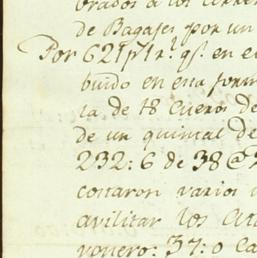 de Bagajes por un
Por 621 p.s 1 r.l q.e en e
buido en esta form
ta de 18 Cueros de
de un quintal de
232: 6 de 38 @
costaron varios
avilitar los
ronero: 37: 0 Ca